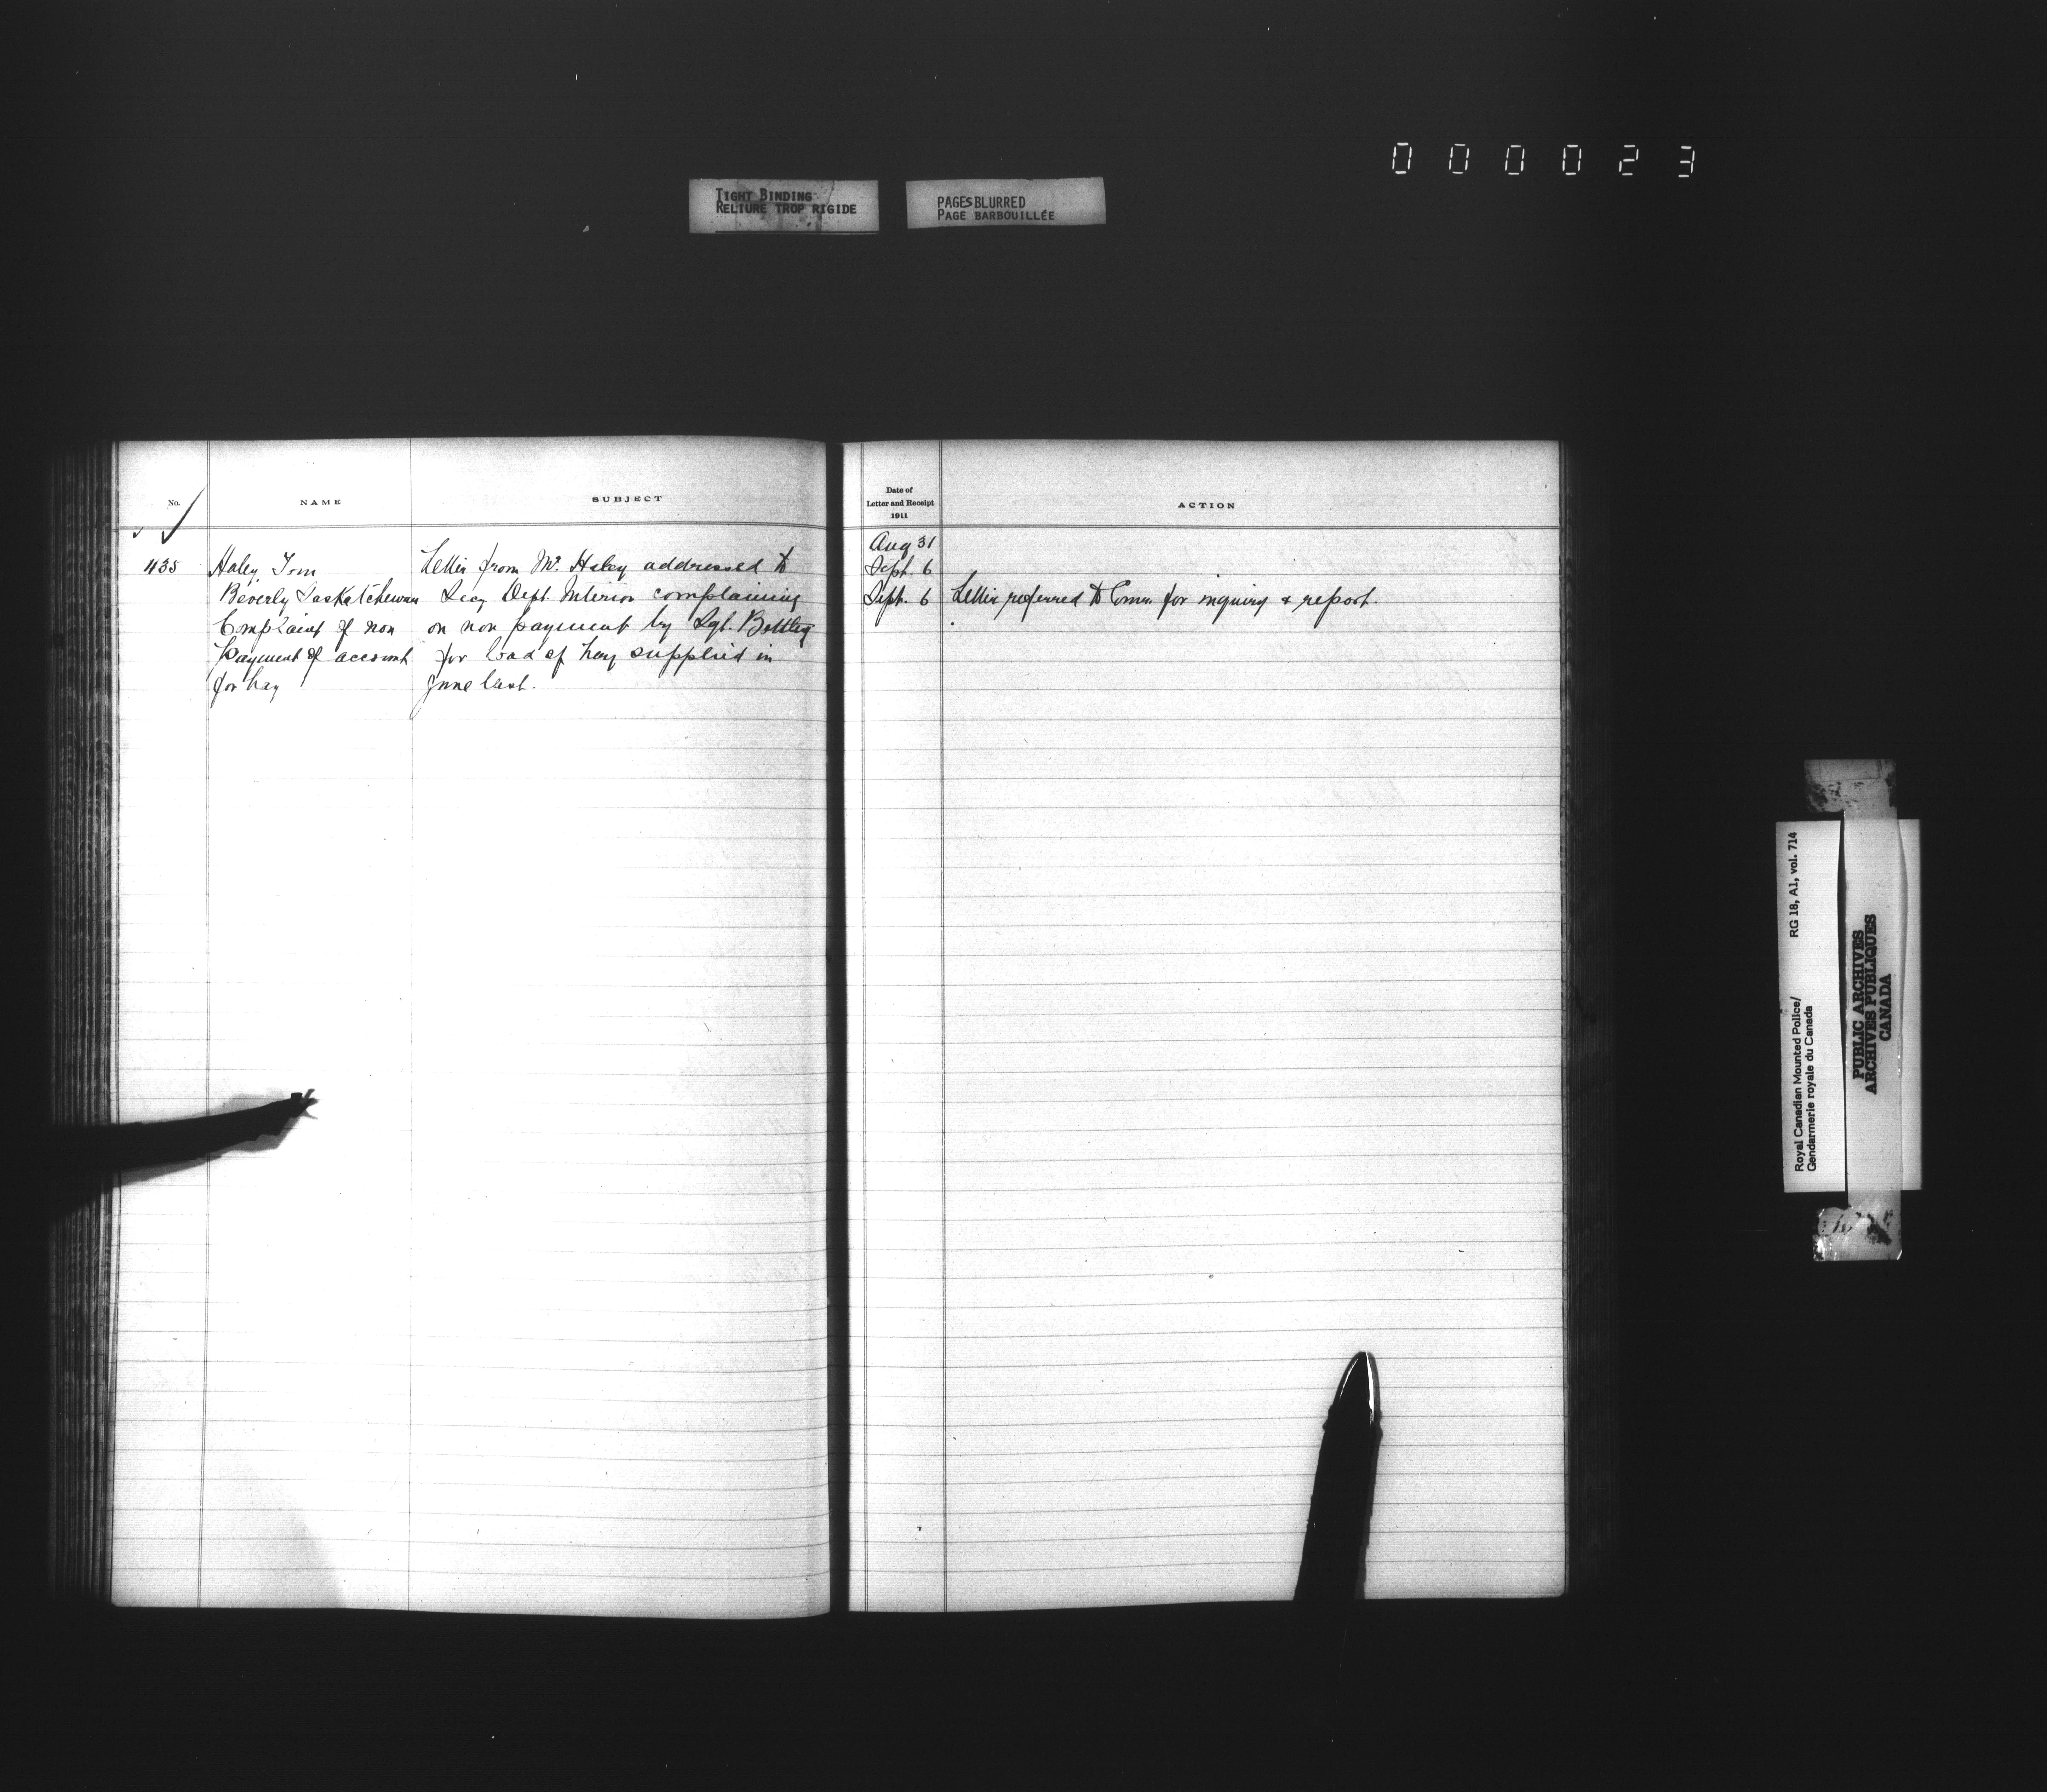 000023
TIGHT BINDING
RELIURE TROP RIGIDE
PAGES BLURRED
PAGE BARBOUILLÉE
No.
NAME
SUBJECT
435
Haley, Tom
Beverly Saskatchewan
Complaint of non
payment of account
for hay
Letter from Mr. Haley addressed to
Secy Dept. Interior complaining
on non payment by Sgt.
for load of hay supplied in
June last.
Date of
Letter and Receipt
1911
ACTION
Aug 31
Sept. 6
Sept. 6 Letter referred to Comr. for inquiry & report.
Royal Canadian Mounted Police/ RG 18, A1, vol. 714
Gendarmerie royale du Canada
PUBLIC ARCHIVES
ARCHIVES PUBLIQUES
CANADA